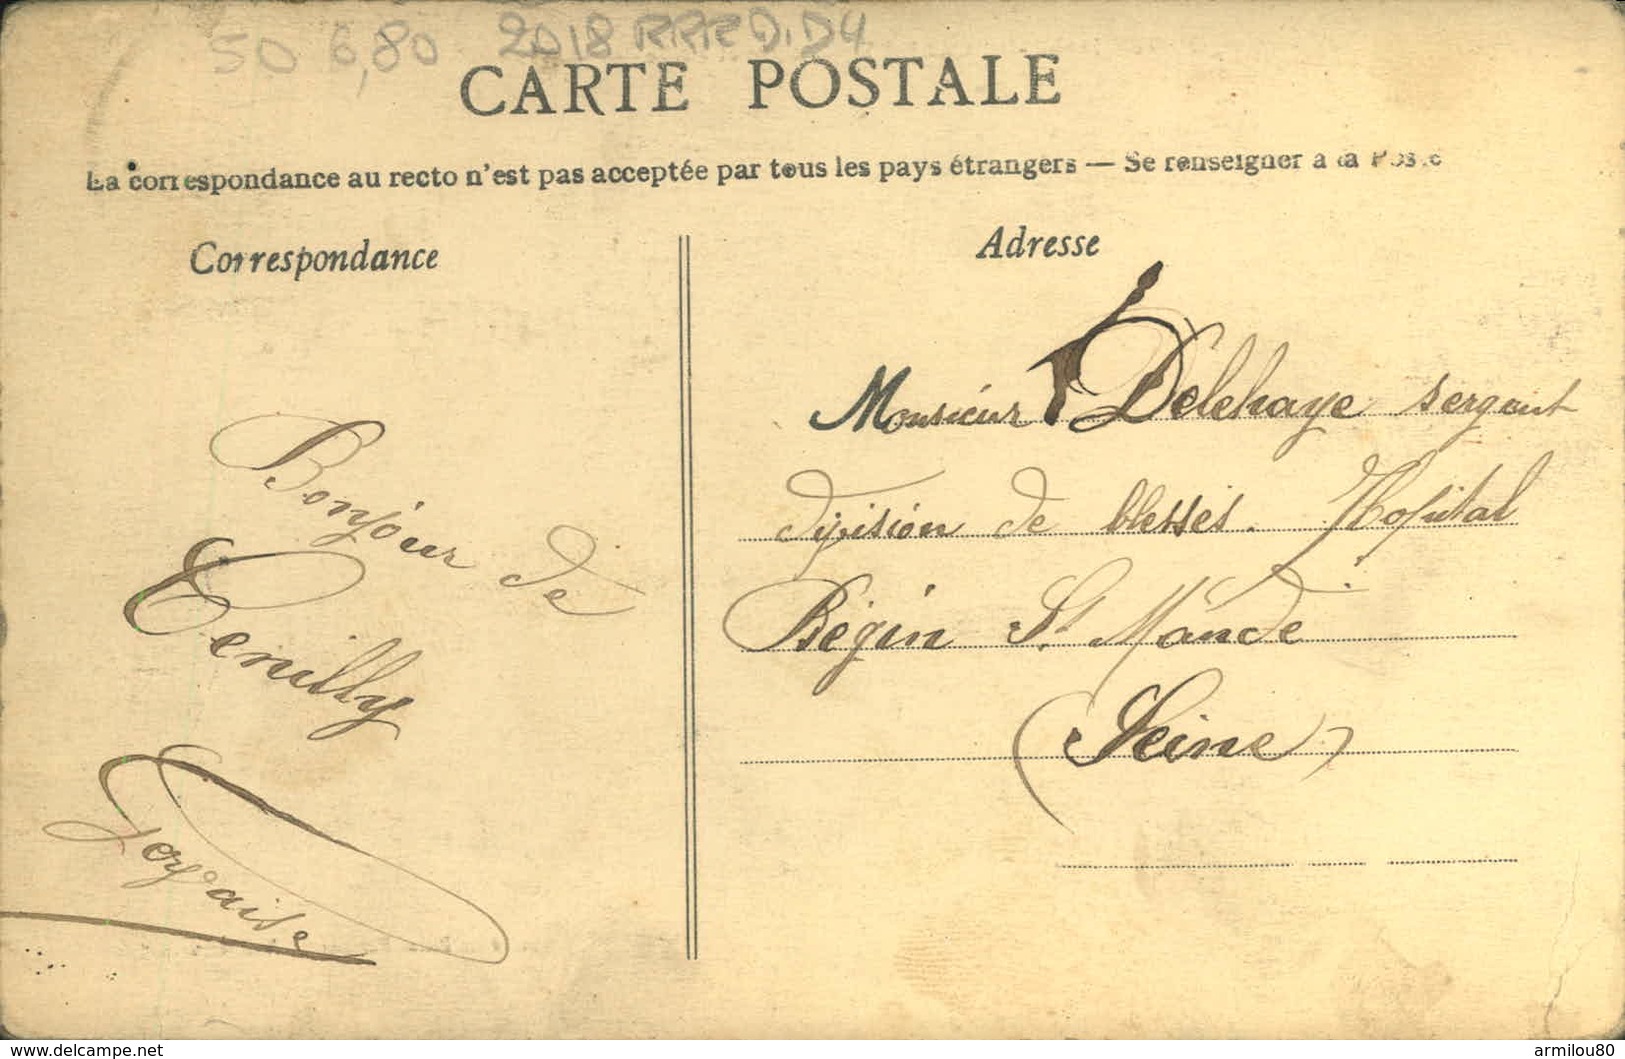 50 6,80 2018 RRR D.D4
CARTE POSTALE
La correspondance au recto n'est pas acceptée par tous les pays étrangers — Se renseigner à la Poste
Correspondance
Adresse
Bonjour de
Tenilly
Monsieur Delehaye sergent
division de blessés. Hopital
Bégin St Mandé
(Seine)
www.delcampe.net
armilou80